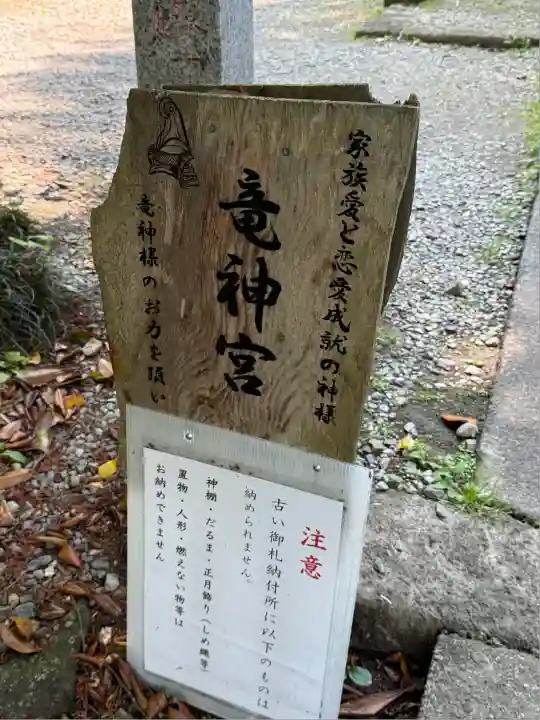 家族愛と恋愛成就の神様
竜神宮
竜神様のお力を頂い
注意
古い御札納付所に以下のものは
納められません。
神棚・だるま・正月飾り(しめ縄等)
置物・人形・燃えない物等は
お納めできません